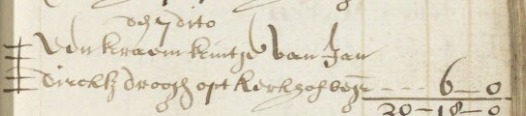 den 7 dito
Een kraem kintje van Jan
Dirckz droogh opt kerkhof begr ---- 6 – 0
20 – 18 – 0